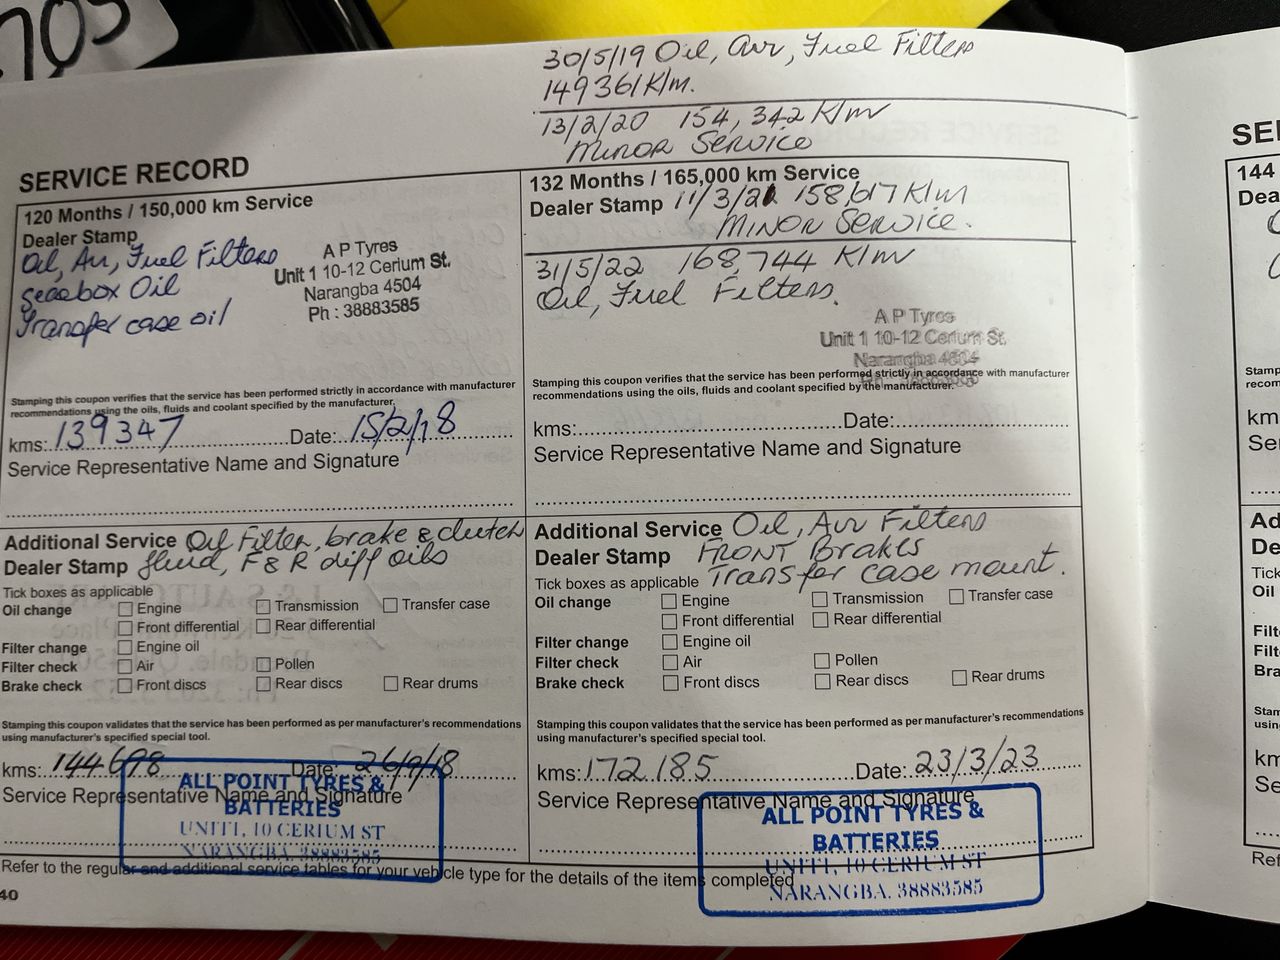 705
30/5/19 Oil, Air, Fuel Filters
149361 K/m.
13/2/20 154,342 K/m
Minor Service
SERVICE RECORD
120 Months / 150,000 km Service
Dealer Stamp
Oil, Air, Fuel Filters
Gearbox Oil
Transfer case oil
A P Tyres
Unit 1 10-12 Cerium St.
Narangba 4504
Ph : 38883585
Stamping this coupon verifies that the service has been performed strictly in accordance with manufacturer
recommendations using the oils, fluids and coolant specified by the manufacturer.
kms: 139347 Date: 15/2/18
Service Representative Name and Signature
132 Months / 165,000 km Service
Dealer Stamp 11/3/21 158,617 K/m
MINOR SERVICE.
31/5/22 168,744 K/m
Oil, Fuel Filters.
A P Tyres
Unit 1 10-12 Cerium St.
Narangba 4504
Stamping this coupon verifies that the service has been performed strictly in accordance with manufacturer
recommendations using the oils, fluids and coolant specified by the manufacturer.
kms: Date:
Service Representative Name and Signature
Additional Service Oil Filter, brake & clutch
Dealer Stamp fluid, F & R diff oils
Tick boxes as applicable
Oil change Engine Transmission Transfer case
Front differential Rear differential
Filter change Engine oil
Filter check Air Pollen
Brake check Front discs Rear discs Rear drums
Stamping this coupon validates that the service has been performed as per manufacturer's recommendations
using manufacturer's specified special tool.
kms: 144698 Date: 26/9/18
Service Representative Name and Signature
ALL POINT TYRES &
BATTERIES
UNIT1, 10 CERIUM ST
NARANGBA. 38883585
Additional Service Oil, Air Filters
Dealer Stamp FRONT Brakes
Tick boxes as applicable Transfer case mount.
Oil change Engine Transmission Transfer case
Front differential Rear differential
Filter change Engine oil
Filter check Air Pollen
Brake check Front discs Rear discs Rear drums
Stamping this coupon validates that the service has been performed as per manufacturer's recommendations
using manufacturer's specified special tool.
kms: 172185 Date: 23/3/23
Service Representative Name and Signature
ALL POINT TYRES &
BATTERIES
UNIT1, 10 CERIUM ST
NARANGBA. 38883585
Refer to the regular and additional service tables for your vehicle type for the details of the items completed
40
SE
144
Dea
Stamp
recom
km
Se
Ad
De
Tick
Oil
Filt
Filt
Bra
Stam
using
km
Se
Ref